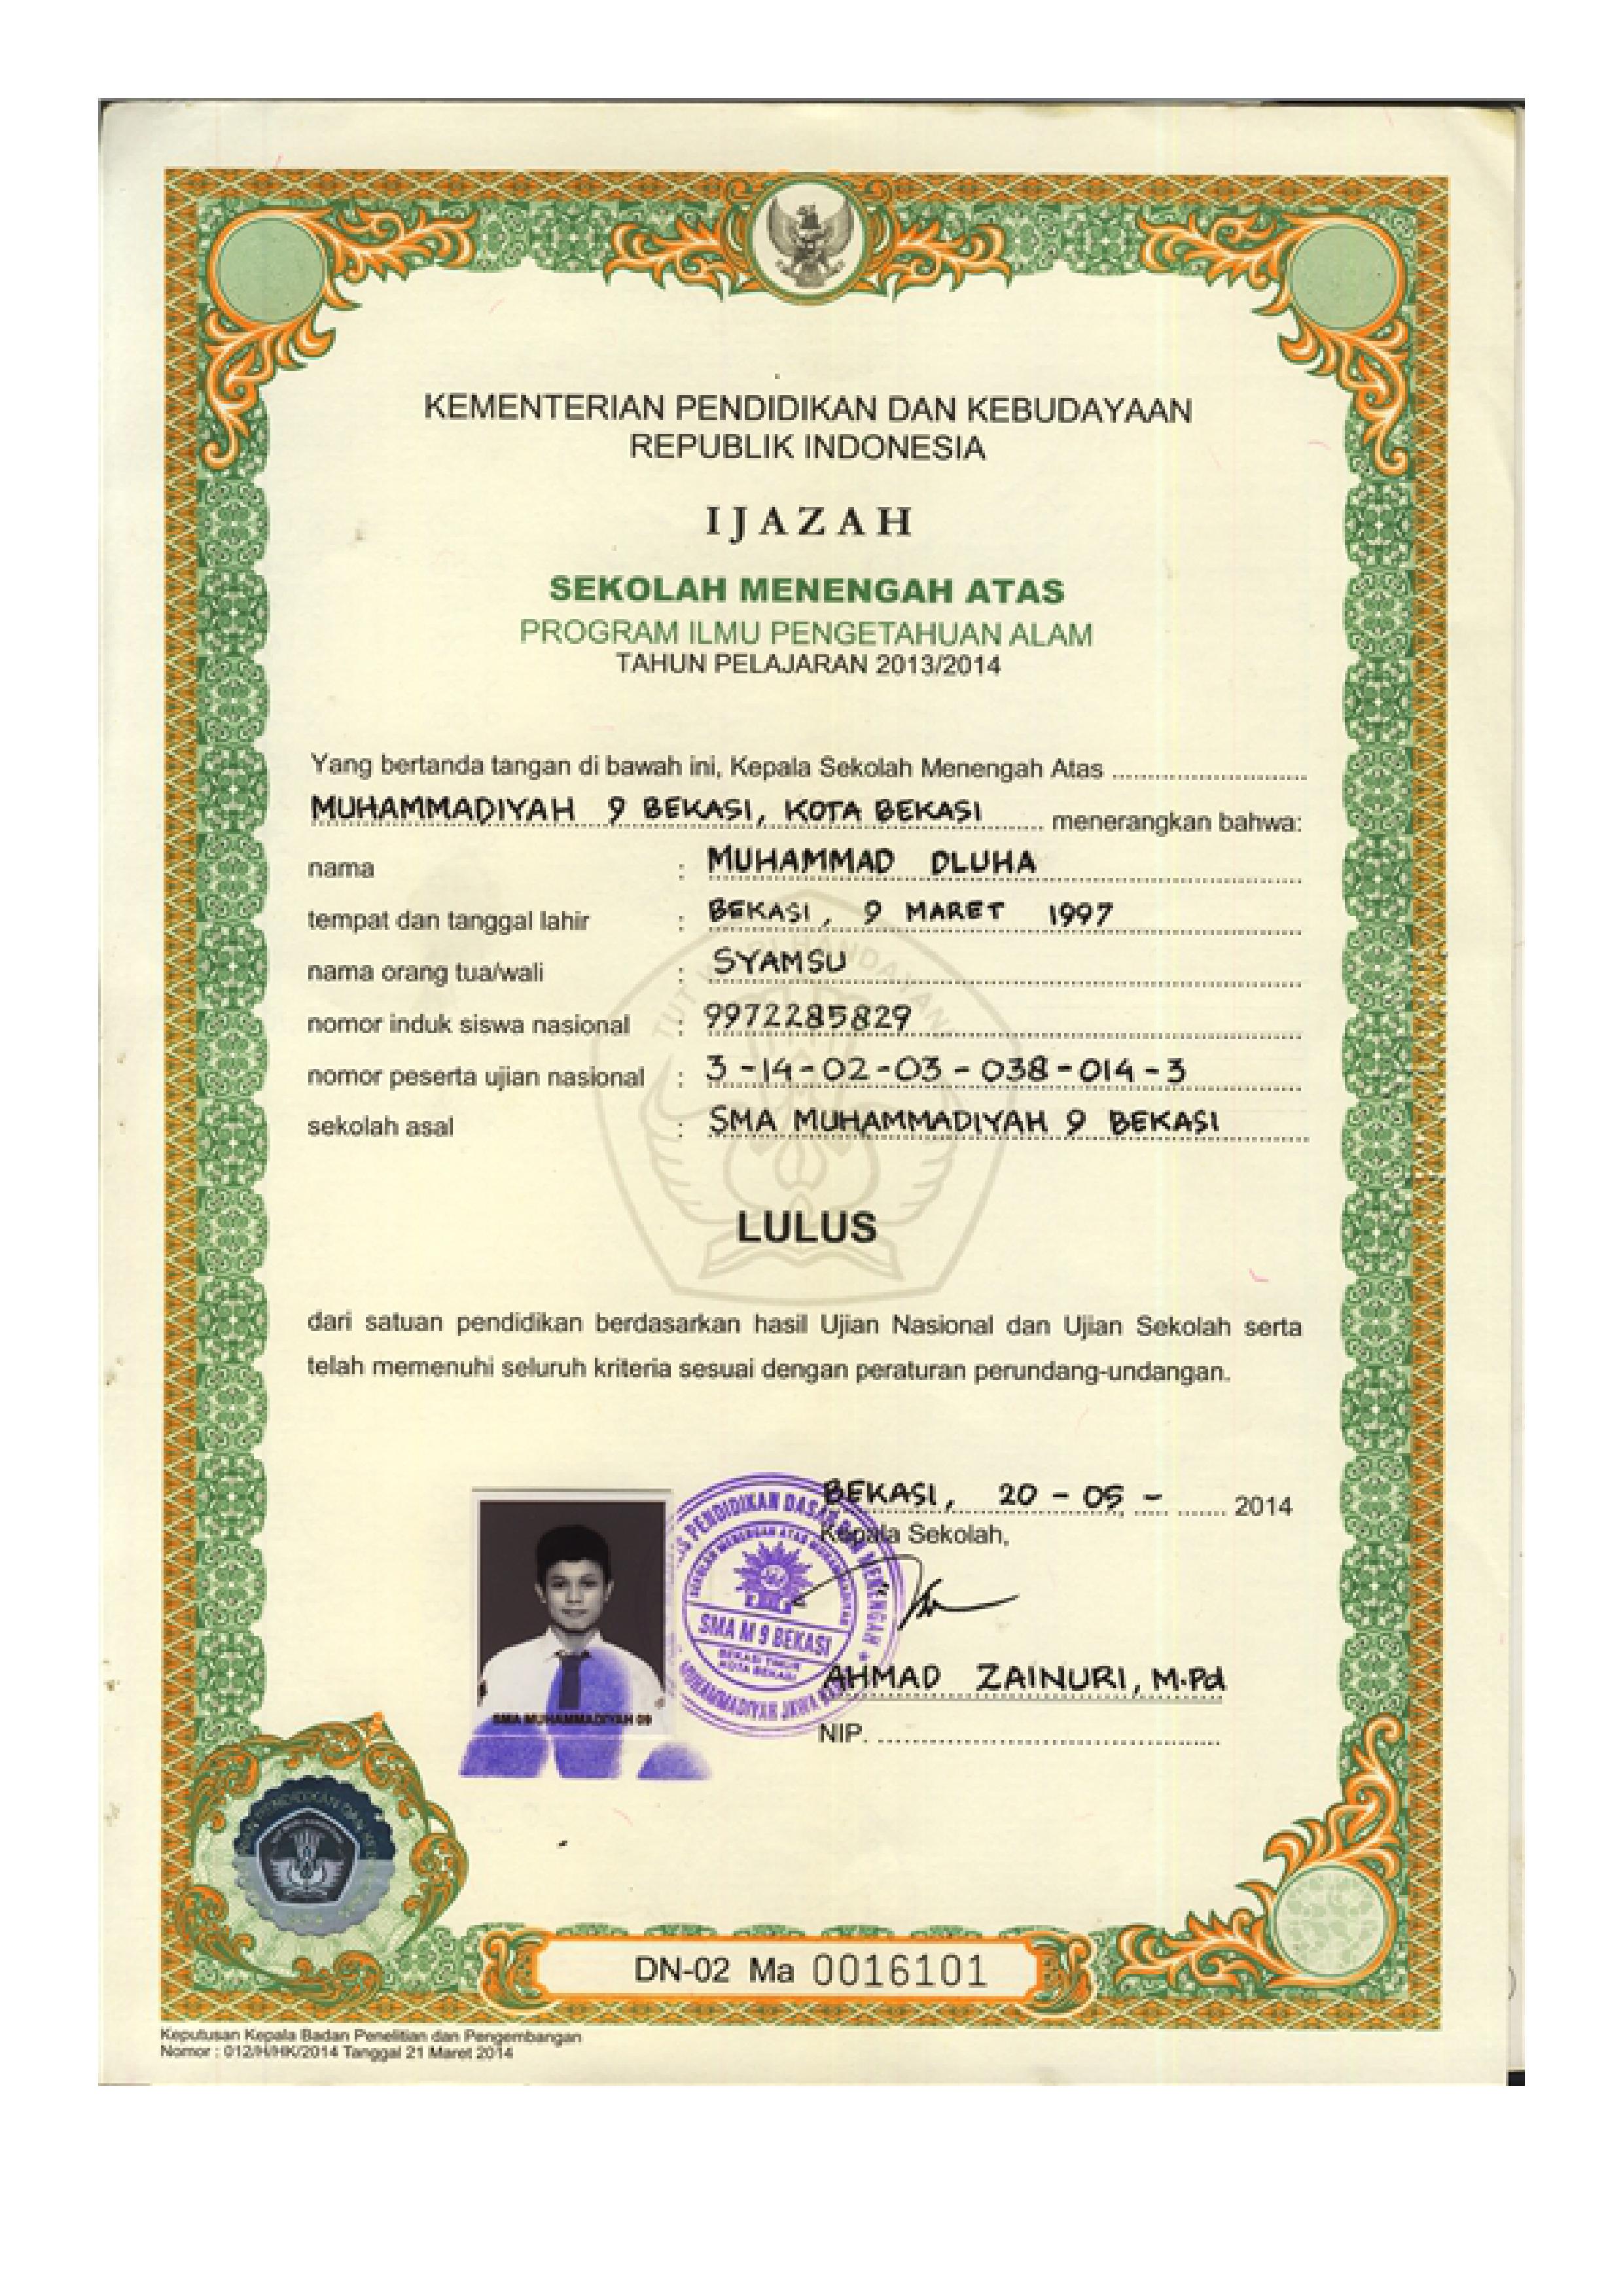 KEMENTERIAN PENDIDIKAN DAN KEBUDAYAAN
REPUBLIK INDONESIA
IJAZAH
SEKOLAH MENENGAH ATAS
PROGRAM ILMU PENGETAHUAN ALAM
TAHUN PELAJARAN 2013/2014
Yang bertanda tangan di bawah ini, Kepala Sekolah Menengah Atas
MUHAMMADIYAH 9 BEKASI, KOTA BEKASI menerangkan bahwa:
nama : MUHAMMAD DLUHA
tempat dan tanggal lahir : BEKASI, 9 MARET 1997
nama orang tua/wali : SYAMSU
nomor induk siswa nasional : 9972285829
nomor peserta ujian nasional : 3-14-02-03-038-014-3
sekolah asal : SMA MUHAMMADIYAH 9 BEKASI
LULUS
dari satuan pendidikan berdasarkan hasil Ujian Nasional dan Ujian Sekolah serta
telah memenuhi seluruh kriteria sesuai dengan peraturan perundang-undangan.
BEKASI, 20 - 05 - 2014
Kepala Sekolah,
SMA M 9 BEKASI
BEKASI TIMUR
KOTA BEKASI
AHMAD ZAINURI, M.Pd
SMA MUHAMMADIYAH 09
NIP.
DN-02 Ma 0016101
Keputusan Kepala Badan Penelitian dan Pengembangan
Nomor : 012/H/HK/2014 Tanggal 21 Maret 2014